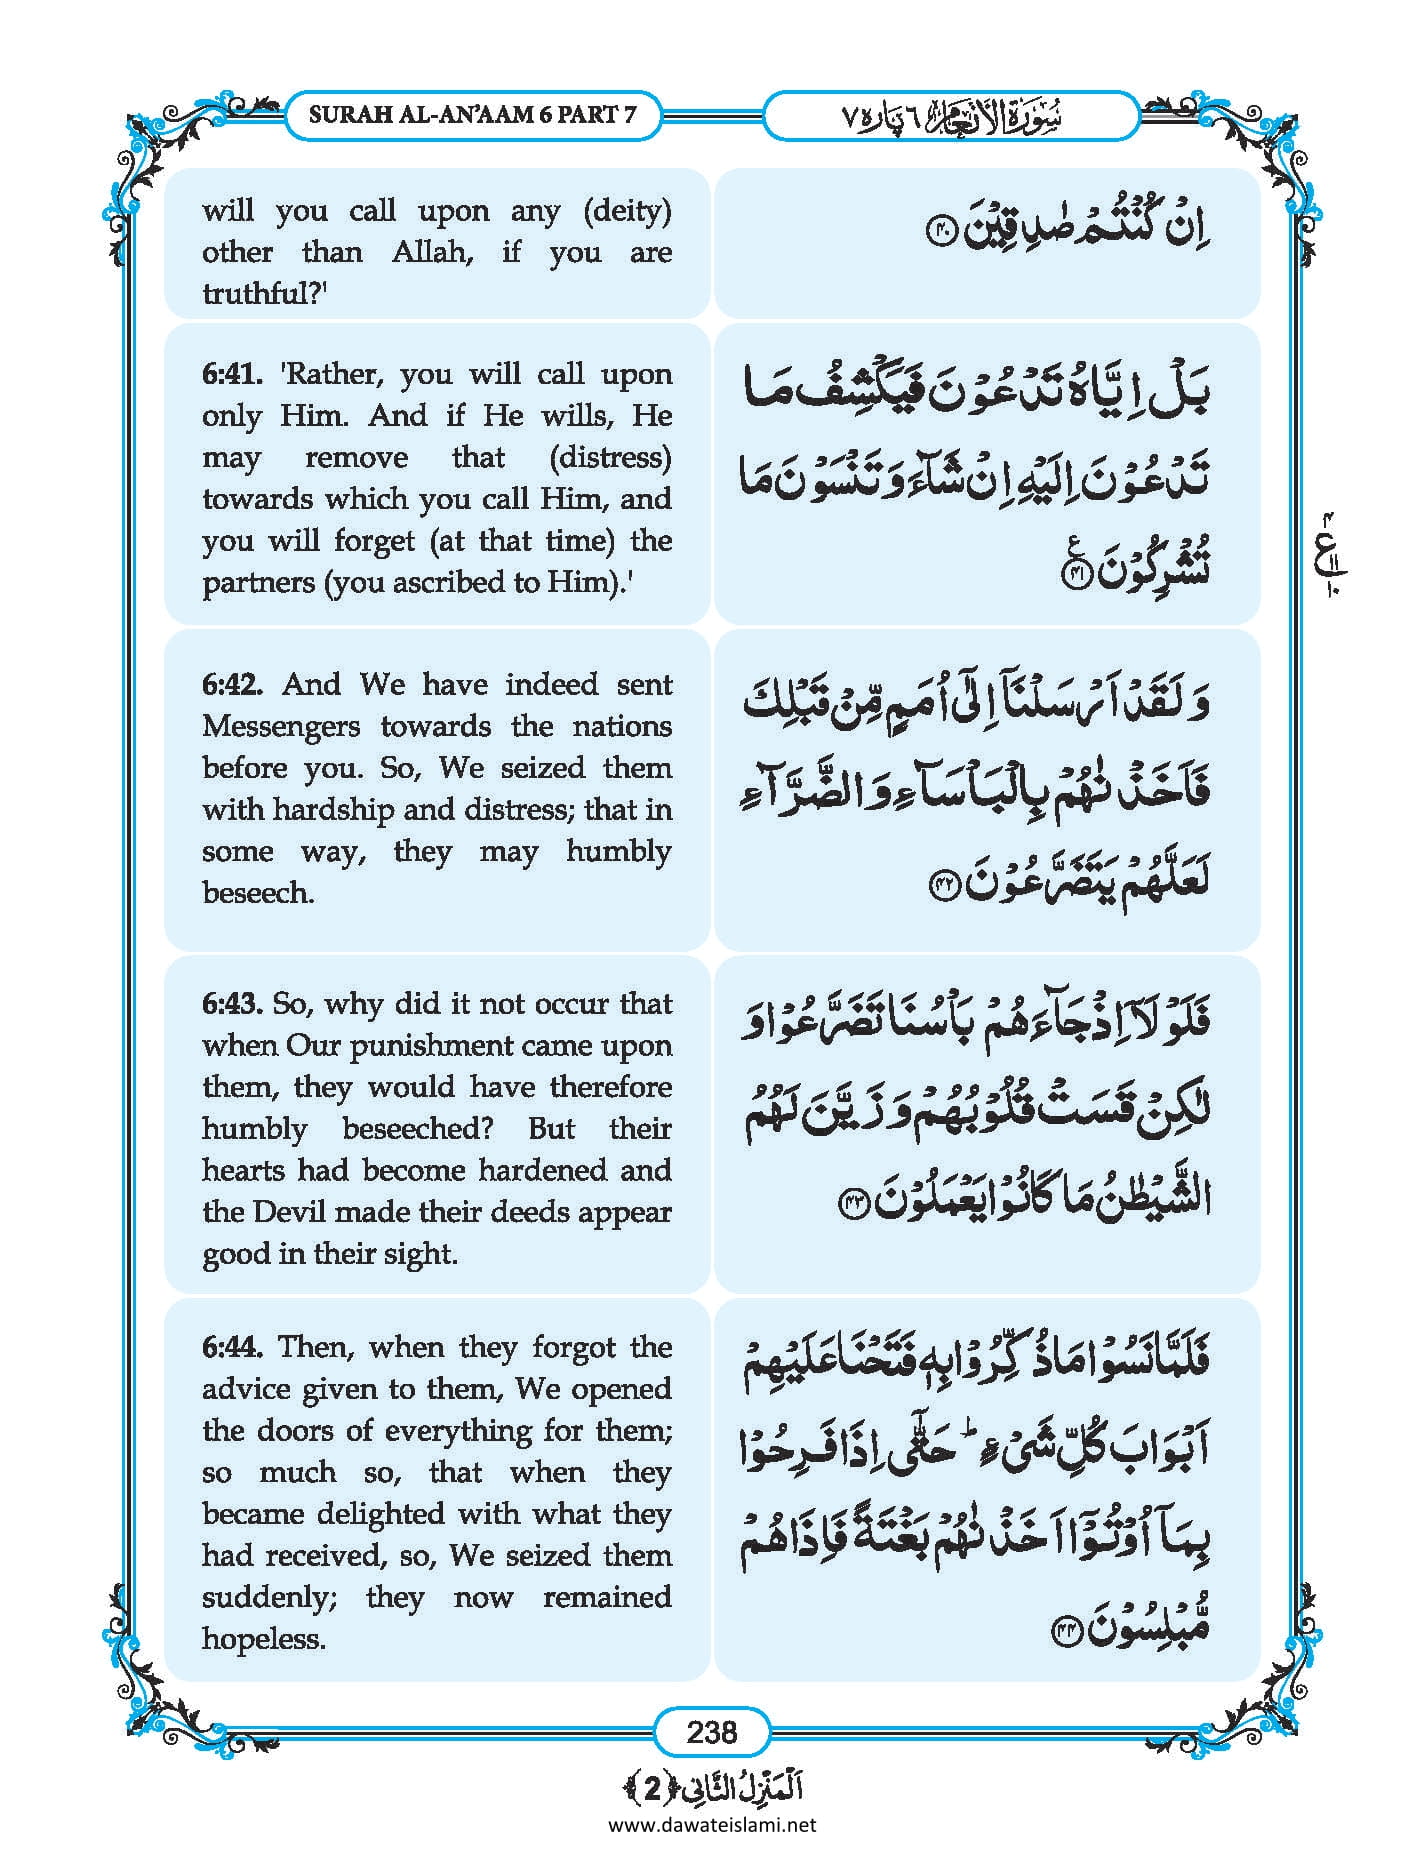 SURAH AL-AN'AAM 6 PART 7
سُوْرَةُ الْاَنْعَام ٦ پارہ ٧
will you call upon any (deity)
other than Allah, if you are
truthful?'
اِنْ كُنْتُمْ صٰدِقِیْنَ ﴿۴۰﴾
6:41. 'Rather, you will call upon
only Him. And if He wills, He
may remove that (distress)
towards which you call Him, and
you will forget (at that time) the
partners (you ascribed to Him).'
بَلْ اِیَّاهُ تَدْعُوْنَ فَیَكْشِفُ مَا
تَدْعُوْنَ اِلَیْهِ اِنْ شَآءَ وَ تَنْسَوْنَ مَا
تُشْرِكُوْنَ ﴿۴۱﴾ ع
۴
ع
۱۱
۱۰
6:42. And We have indeed sent
Messengers towards the nations
before you. So, We seized them
with hardship and distress; that in
some way, they may humbly
beseech.
وَ لَقَدْ اَرْسَلْنَاۤ اِلٰۤی اُمَمٍ مِّنْ قَبْلِكَ
فَاَخَذْنٰهُمْ بِالْبَاْسَآءِ وَ الضَّرَّآءِ
لَعَلَّهُمْ یَتَضَرَّعُوْنَ ﴿۴۲﴾
6:43. So, why did it not occur that
when Our punishment came upon
them, they would have therefore
humbly beseeched? But their
hearts had become hardened and
the Devil made their deeds appear
good in their sight.
فَلَوْلَاۤ اِذْ جَآءَهُمْ بَاْسُنَا تَضَرَّعُوْا وَ
لٰكِنْ قَسَتْ قُلُوْبُهُمْ وَ زَیَّنَ لَهُمُ
الشَّیْطٰنُ مَا كَانُوْا یَعْمَلُوْنَ ﴿۴۳﴾
6:44. Then, when they forgot the
advice given to them, We opened
the doors of everything for them;
so much so, that when they
became delighted with what they
had received, so, We seized them
suddenly; they now remained
hopeless.
فَلَمَّا نَسُوْا مَا ذُكِّرُوْا بِهٖ فَتَحْنَا عَلَیْهِمْ
اَبْوَابَ كُلِّ شَیْءٍ ؕ حَتّٰۤی اِذَا فَرِحُوْا
بِمَاۤ اُوْتُوْۤا اَخَذْنٰهُمْ بَغْتَةً فَاِذَا هُمْ
مُّبْلِسُوْنَ ﴿۴۴﴾
238
اَلْمَنْزِلُ الثَّانِی ﴿2﴾
www.dawateislami.net